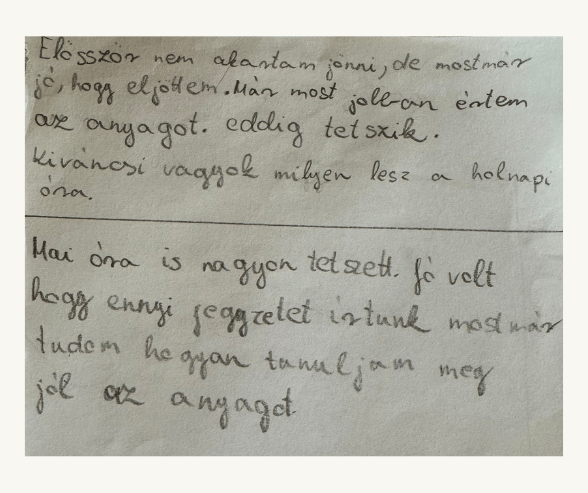 Elősször nem akartam jönni, de mostmár
jó, hogy eljöttem. Már most jobban értem
az anyagot. eddig tetszik.
Kiváncsi vagyok milyen lesz a holnapi
óra.
Mai óra is nagyon tetszett. Jó volt
hogy ennyi jegyzetet írtunk mostmár
tudom hogyan tanuljam meg
jól az anyagot